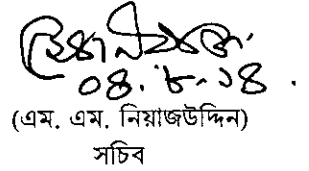 ০৪.৮.১৪.
(এম. এম. নিয়াজউদ্দিন)
সচিব